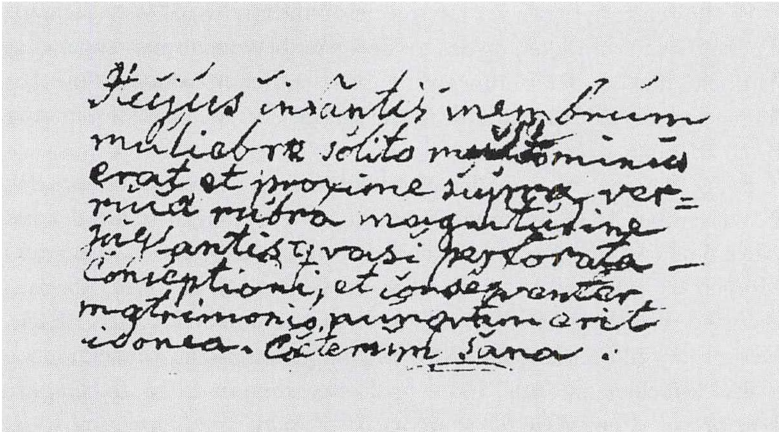 Hujus infantis membrum
muliebre solito multo minus
erat et proxime supra ver=
ruca rubra magnitudine
quasi perforata –
Conceptioni, et consequenter
matrimonio nunquam erit
idonea. Cæterum sana.